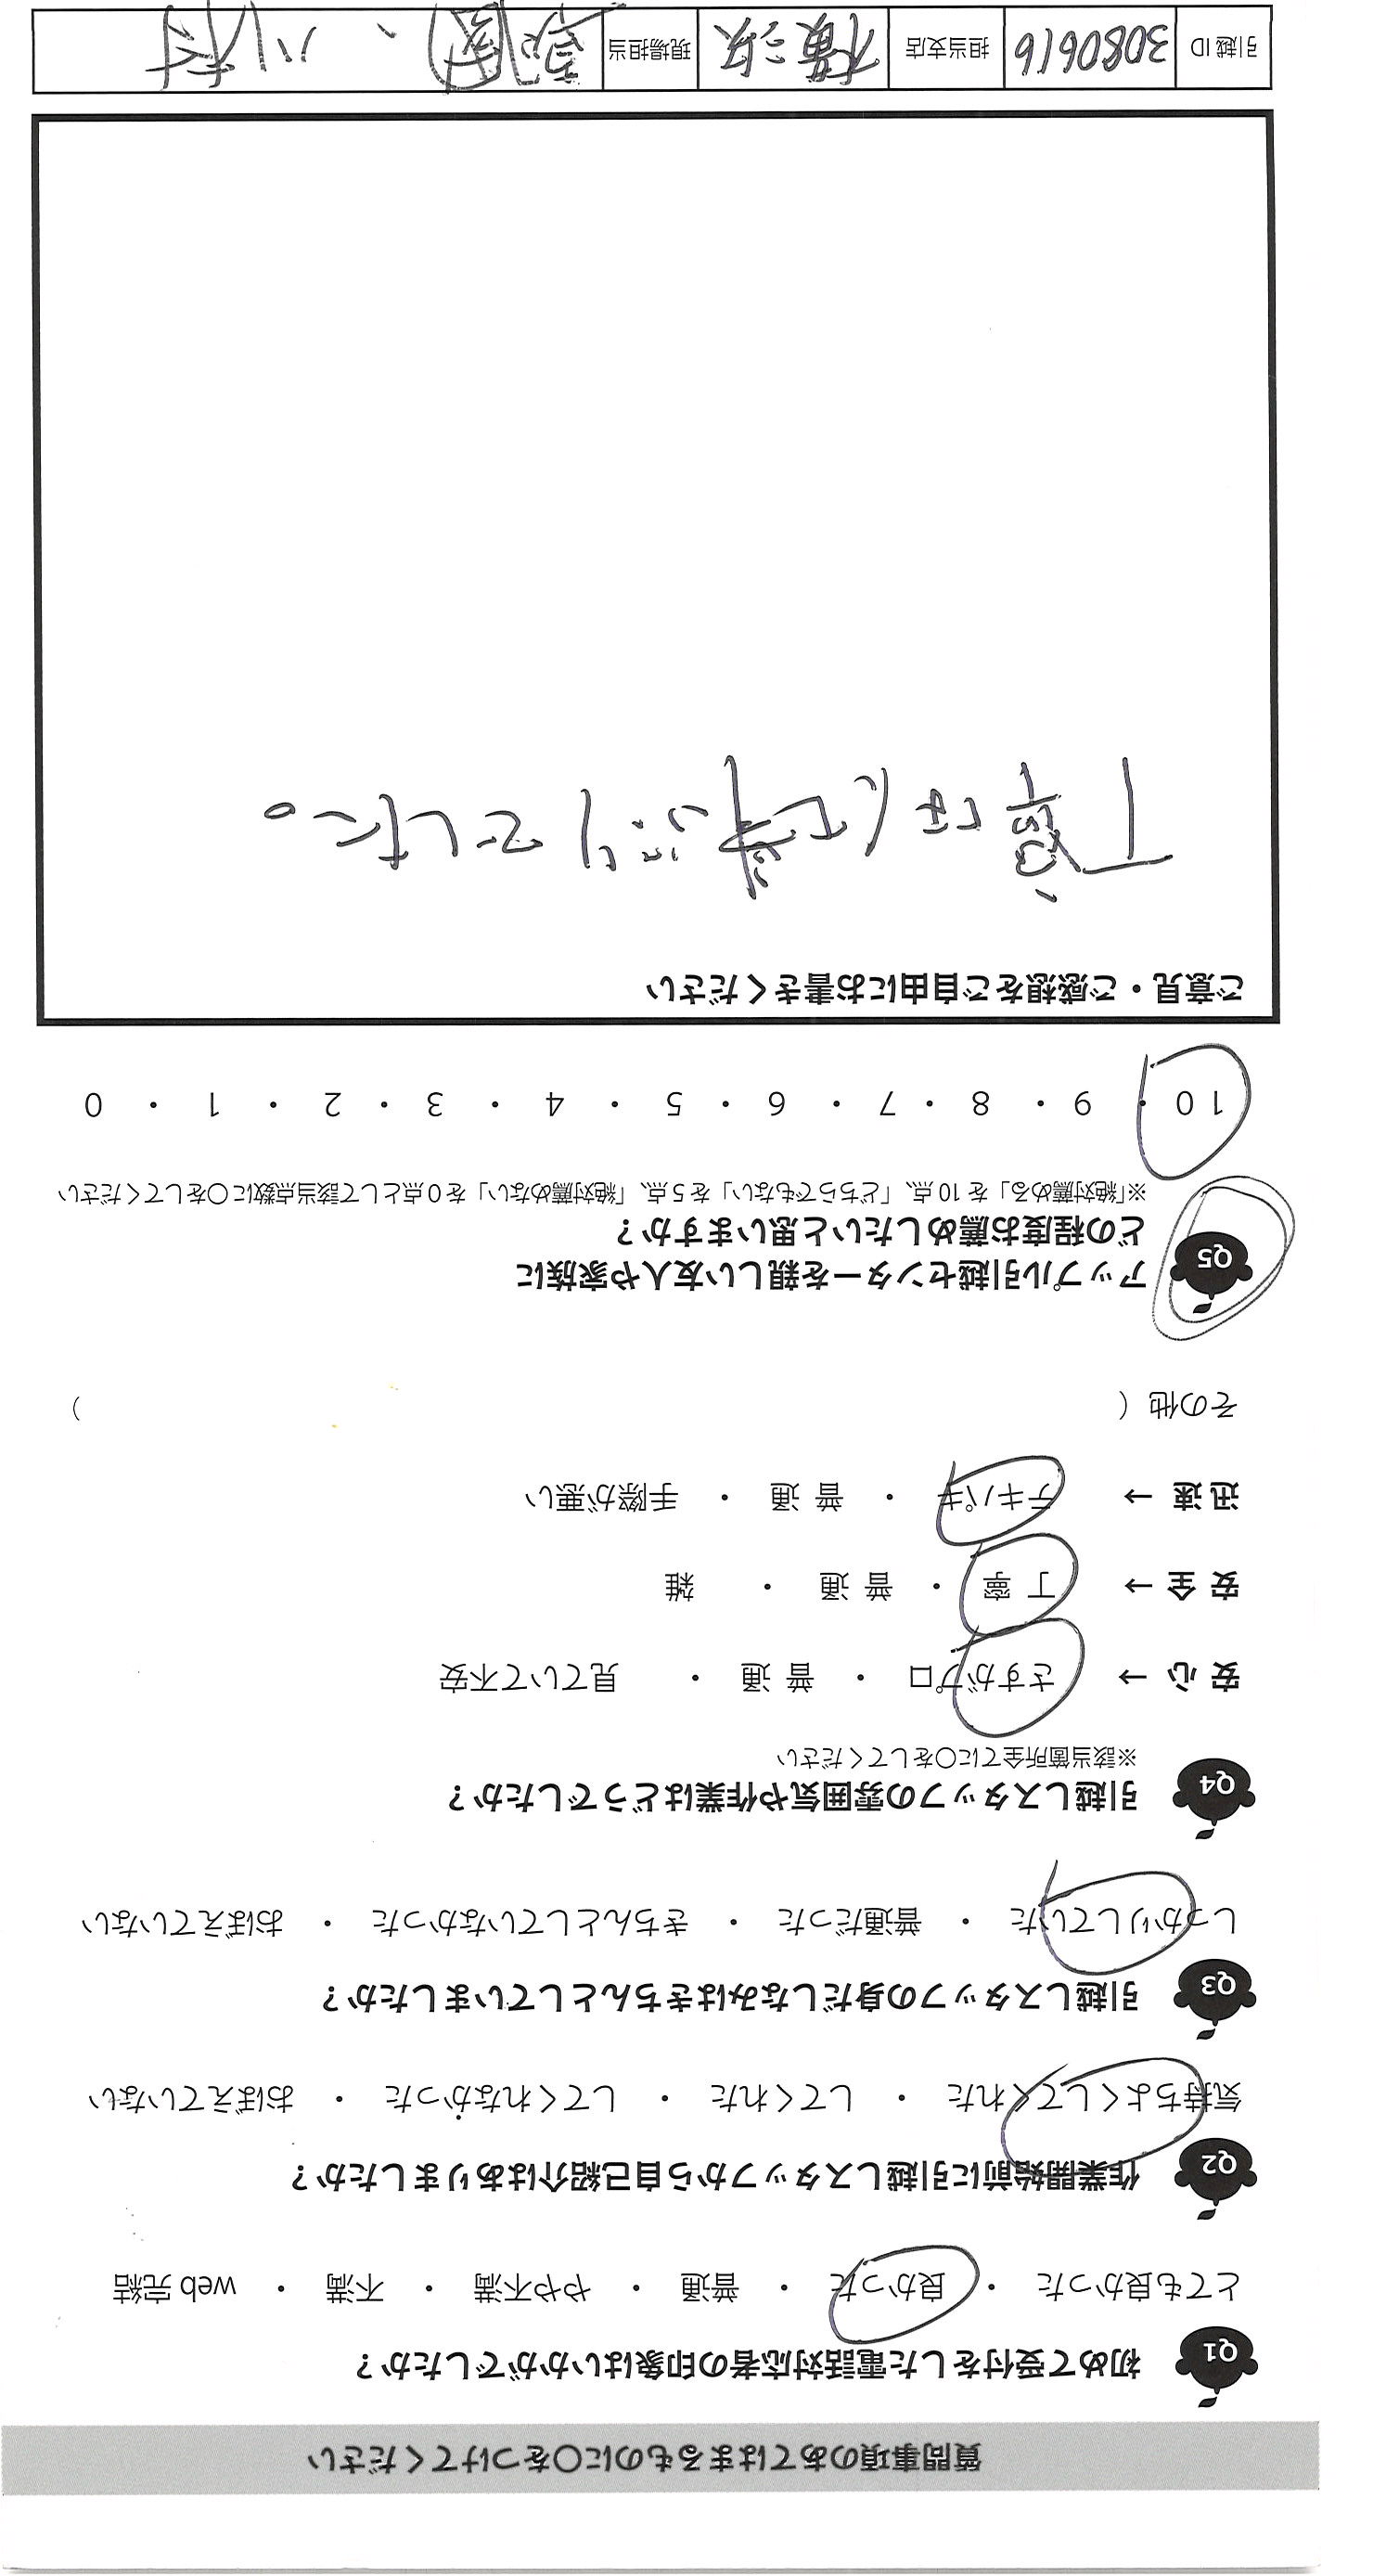 質問事項のあてはまるものに〇をつけてください
Q1 初めて受付をした電話対応者の印象はいかがでしたか？
とても良かった ・ 良かった ・ 普通 ・ やや不満 ・ 不満 ・ web 完結
Q2 作業開始前に引越しスタッフから自己紹介はありましたか？
気持ちよくしてくれた ・ してくれた ・ してくれなかった ・ おぼえていない
Q3 引越しスタッフの身だしなみはきちんとしていましたか？
しっかりしていた ・ 普通だった ・ きちんとしていなかった ・ おぼえていない
Q4 引越しスタッフの雰囲気や作業はどうでしたか？
※該当箇所全てに〇をしてください
安心 → さすがプロ ・ 普通 ・ 見ていて不安
安全 → 丁寧 ・ 普通 ・ 雑
迅速 → テキパキ ・ 普通 ・ 手際が悪い
その他（ ）
Q5 アップル引越センターを親しい友人や家族に
どの程度お薦めしたいと思いますか？
※「絶対薦める」を10点、「どちらでもない」を5点、「絶対薦めない」を0点として該当点数に〇をしてください
10 ・ 9 ・ 8 ・ 7 ・ 6 ・ 5 ・ 4 ・ 3 ・ 2 ・ 1 ・ 0
ご意見・ご感想をご自由にお書きください
丁寧な仕事ぶりでした。
引越ID 3080616 担当支店 横浜 現場担当 、小村